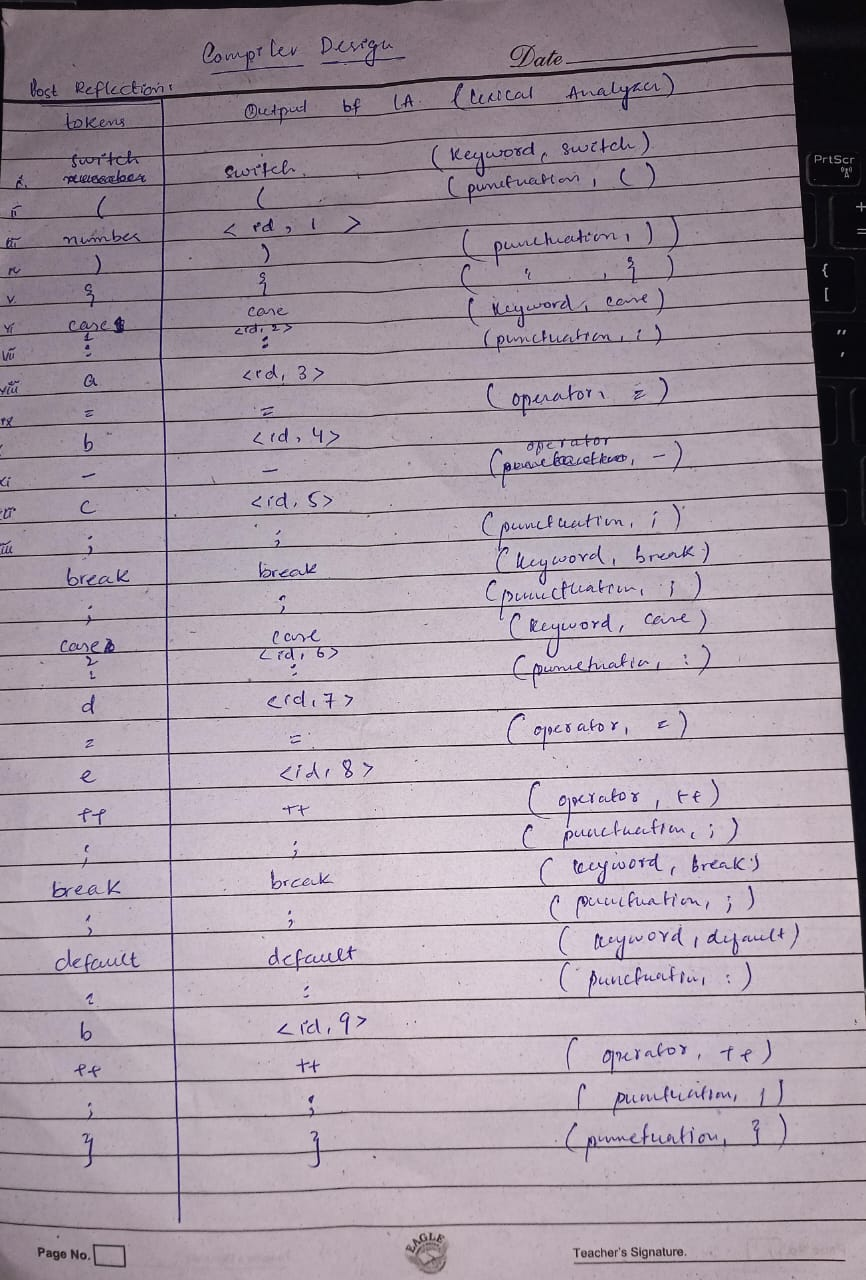 Compiler Design
Date
Post Reflection:
tokens Output of LA. (Lexical Analyzer)
i. switch switch (keyword, switch)
ii ( ( (punctuation, ()
iii number <id, 1>
iv ) ) (punctuation, ))
v. { { ( " , { )
vi case case (keyword, case)
1 <id, 2>
vii : : (punctuation, :)
viii a <id, 3>
ix = = (operator, =)
b <id, 4>
xi - - (operator, -)
xii c <id, 5>
; ; (punctuation, ;)
break break (keyword, break)
; ; (punctuation, ;)
case case (keyword, case)
2 <id, 6>
: : (punctuatin, :)
d <id, 7>
= = (operator, =)
e <id, 8>
++ ++ (operator, ++)
; ; (punctuation, ;)
break break (keyword, break)
; ; (punctuation, ;)
default default (keyword, default)
: : (punctuatin, :)
b <id, 9>
++ ++ (operator, ++)
; ; (punctuation, ;)
} } (punctuation, })
Page No.
EAGLE
Teacher's Signature.
PrtScr
{
[
"
'
+
=